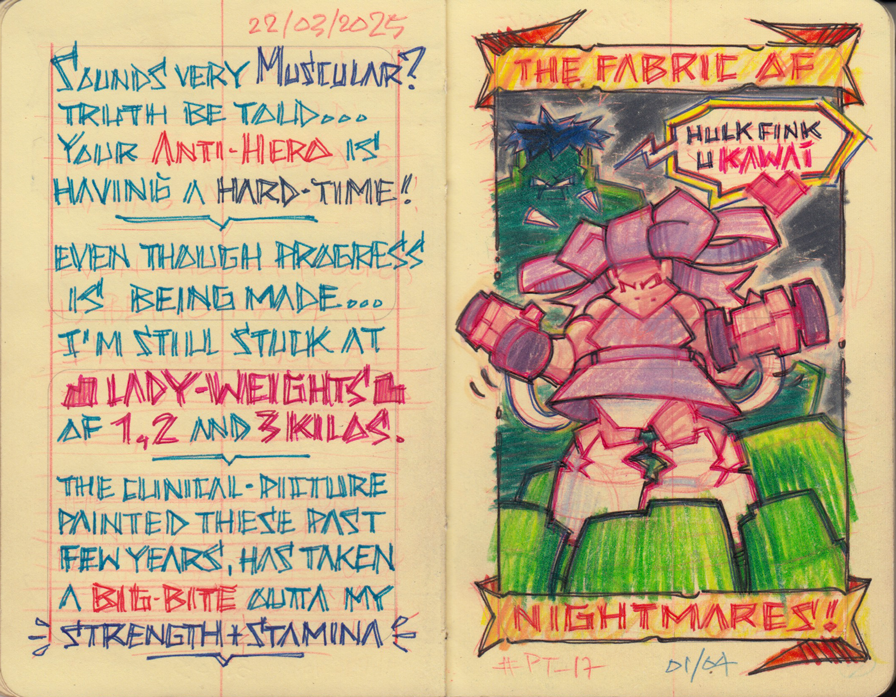 22/03/2025
SOUNDS VERY MUSCULAR?
TRUTH BE TOLD...
YOUR ANTI-HERO IS
HAVING A HARD-TIME!
EVEN THOUGH PROGRESS
IS BEING MADE...
I'M STILL STUCK AT
LADY-WEIGHTS
OF 1,2 AND 3 KILOS.
THE CLINICAL-PICTURE
PAINTED THESE PAST
FEW YEARS, HAS TAKEN
A BIG-BITE OUTTA MY
STRENGTH + STAMINA
THE FABRIC OF
HULK FINK
U KAWAÏ
NIGHTMARES!!
#PT_17
01/04